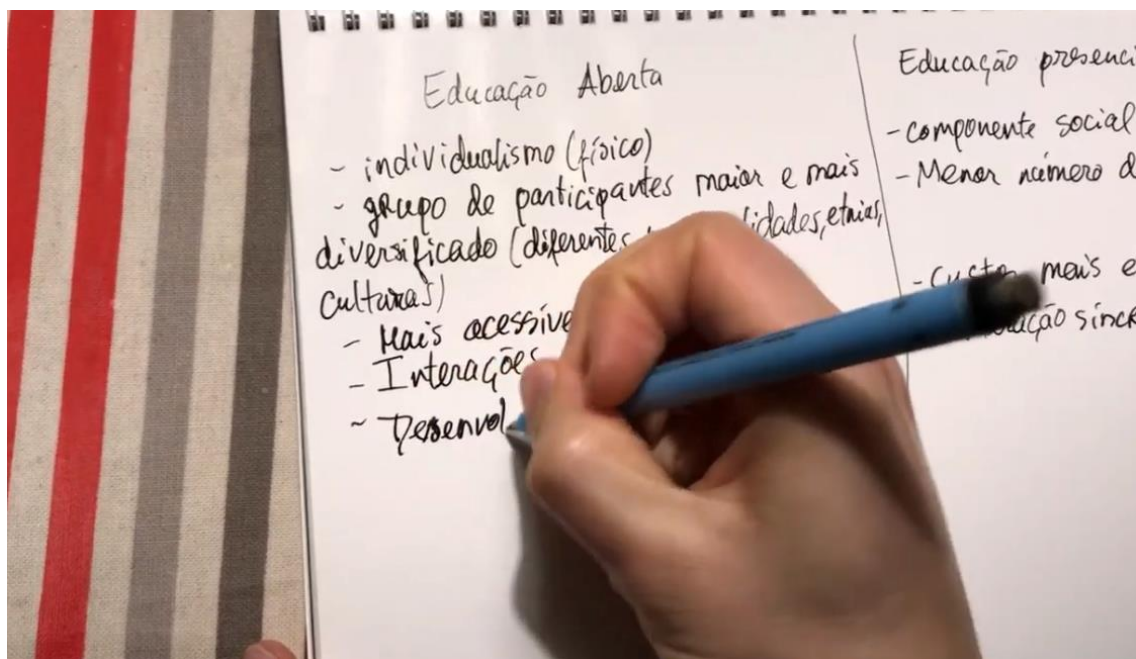 Educação Aberta
- individualismo (físico)
- grupo de participantes maior e mais
diversificado (diferentes lidades, etnias,
culturas)
- Mais acessíve
- Interações
- Desenvol
Educação presenci
- componente social
- Menor número d
- Custo mais e
ação sincr